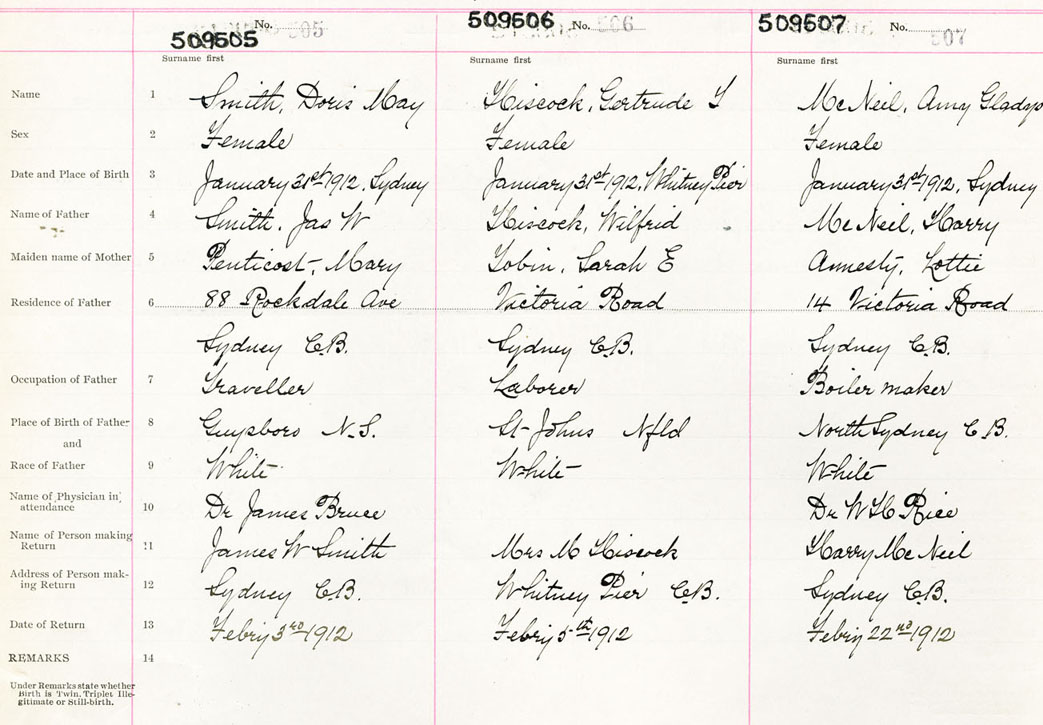 509505 No. 505
509506 No. 506
509507 No. 507
Surname first Surname first Surname first
Name 1 Smith, Doris May Hiscock, Gertrude McNeil, Amy Gladys
Sex 2 Female Female Female
Date and Place of Birth 3 January 31st 1912, Sydney January 31st 1912, Whitney Pier January 31st 1912, Sydney
Name of Father 4 Smith, Jas W Hiscock, Wilfrid McNeil, Harry
Maiden name of Mother 5 Penticost, Mary Tobin, Sarah E Annesty, Lottie
Residence of Father 6 88 Rockdale Ave Victoria Road 14 Victoria Road
Sydney C.B. Sydney C.B. Sydney C.B.
Occupation of Father 7 Traveller Laborer Boiler maker
Place of Birth of Father 8 Guysboro N.S. St Johns Nfld North Sydney C.B.
and
Race of Father 9 White White White
Name of Physician in
attendance 10 Dr James Bruce Dr W H Rice
Name of Person making
Return 11 James W Smith Mrs M Hiscock Harry McNeil
Address of Person mak-
ing Return 12 Sydney C.B. Whitney Pier C.B. Sydney C.B.
Date of Return 13 Febry 3rd 1912 Febry 5th 1912 Febry 22nd 1912
REMARKS 14
Under Remarks state whether
Birth is Twin, Triplet Ille-
gitimate or Still-birth.